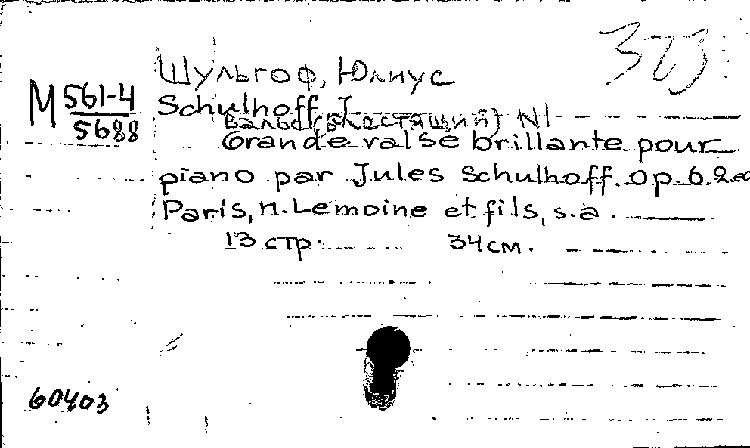 323
Шульгоф, Юлиус
M 561-4
5688
Schulhoff, J.
Вальс (блестящий) N1
Grande valse brillante pour
piano par Jules Schulhoff. Op. 6. 2
Paris, H. Lemoine et fils, s.a.
13 стр. 34 см.
60403